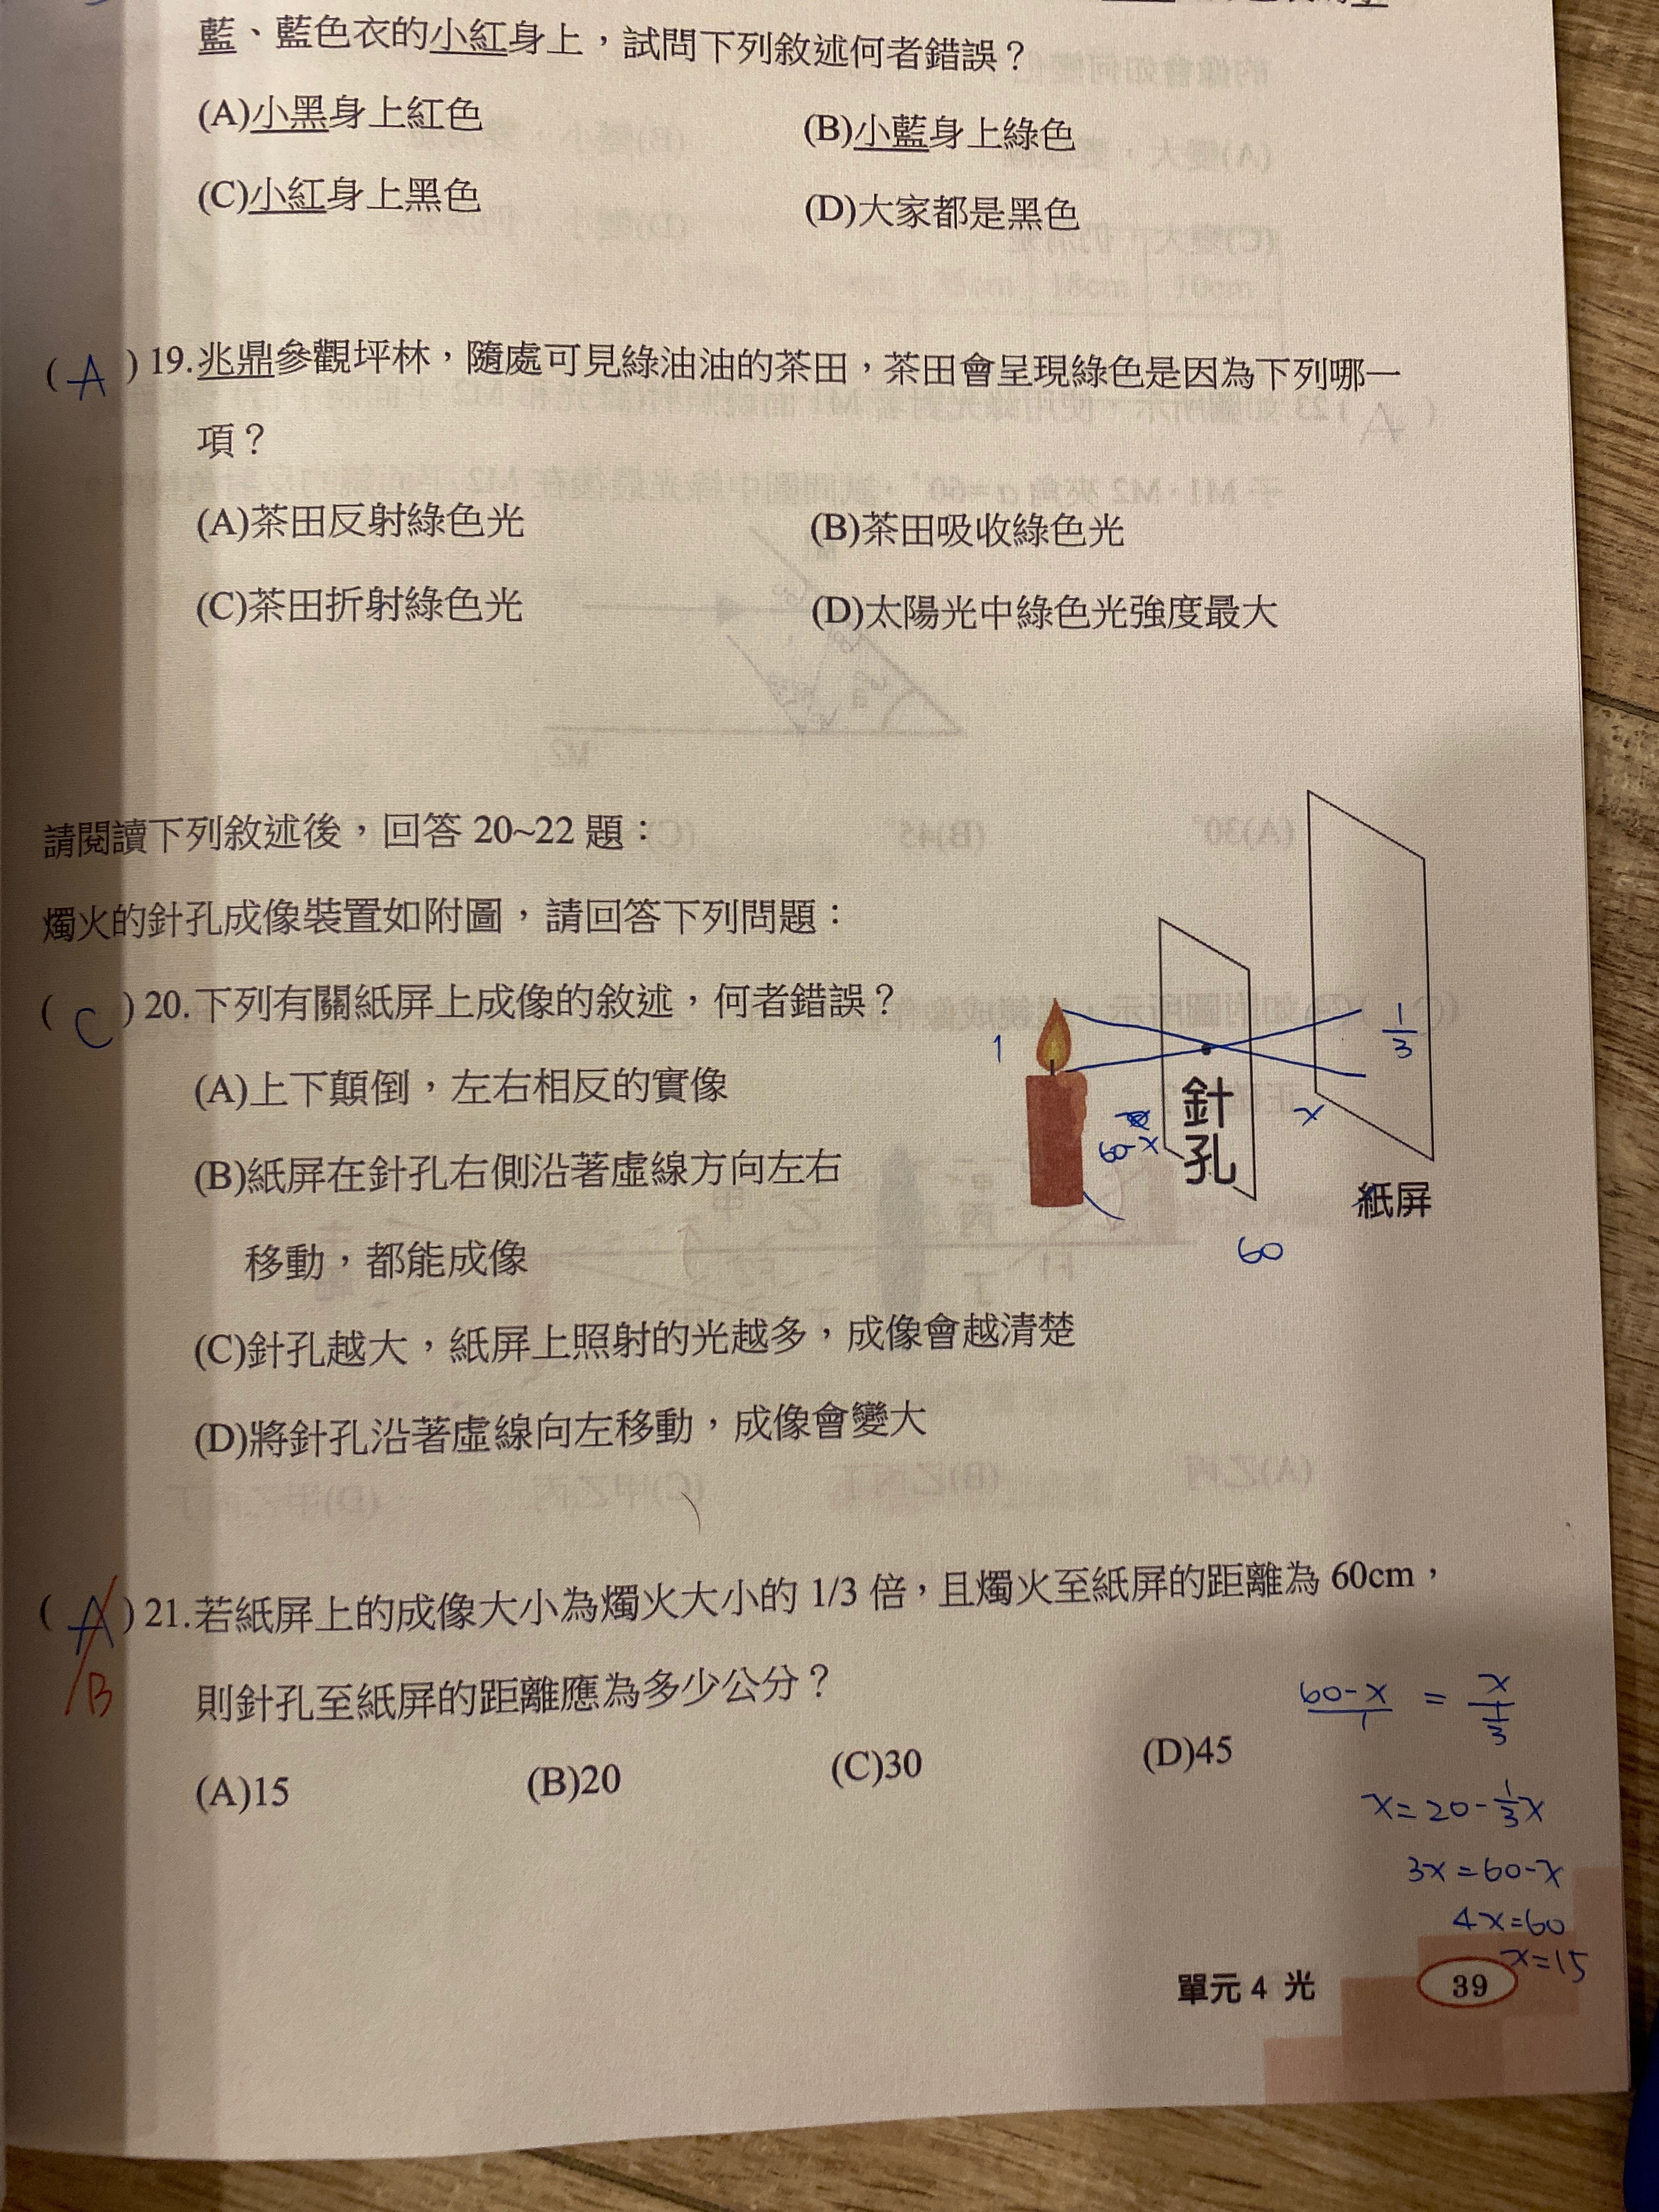 藍、藍色衣的小紅身上，試問下列敘述何者錯誤？
(A)小黑身上紅色
(B)小藍身上綠色
(C)小紅身上黑色
(D)大家都是黑色
( A ) 19.兆鼎參觀坪林，隨處可見綠油油的茶田，茶田會呈現綠色是因為下列哪一
項？
(A)茶田反射綠色光
(B)茶田吸收綠色光
(C)茶田折射綠色光
(D)太陽光中綠色光強度最大
請閱讀下列敘述後，回答 20~22 題：
燭火的針孔成像裝置如附圖，請回答下列問題：
( C ) 20.下列有關紙屏上成像的敘述，何者錯誤？
(A)上下顛倒，左右相反的實像
(B)紙屏在針孔右側沿著虛線方向左右
移動，都能成像
(C)針孔越大，紙屏上照射的光越多，成像會越清楚
(D)將針孔沿著虛線向左移動，成像會變大
1
1/3
針孔
60-x
x
紙屏
60
( A ) 21.若紙屏上的成像大小為燭火大小的 1/3 倍，且燭火至紙屏的距離為 60cm，
B
則針孔至紙屏的距離應為多少公分？
(A)15
(B)20
(C)30
(D)45
(60-x)/1 = x/(1/3)
x=20-1/3x
3x=60-x
4x=60
x=15
單元 4 光
39